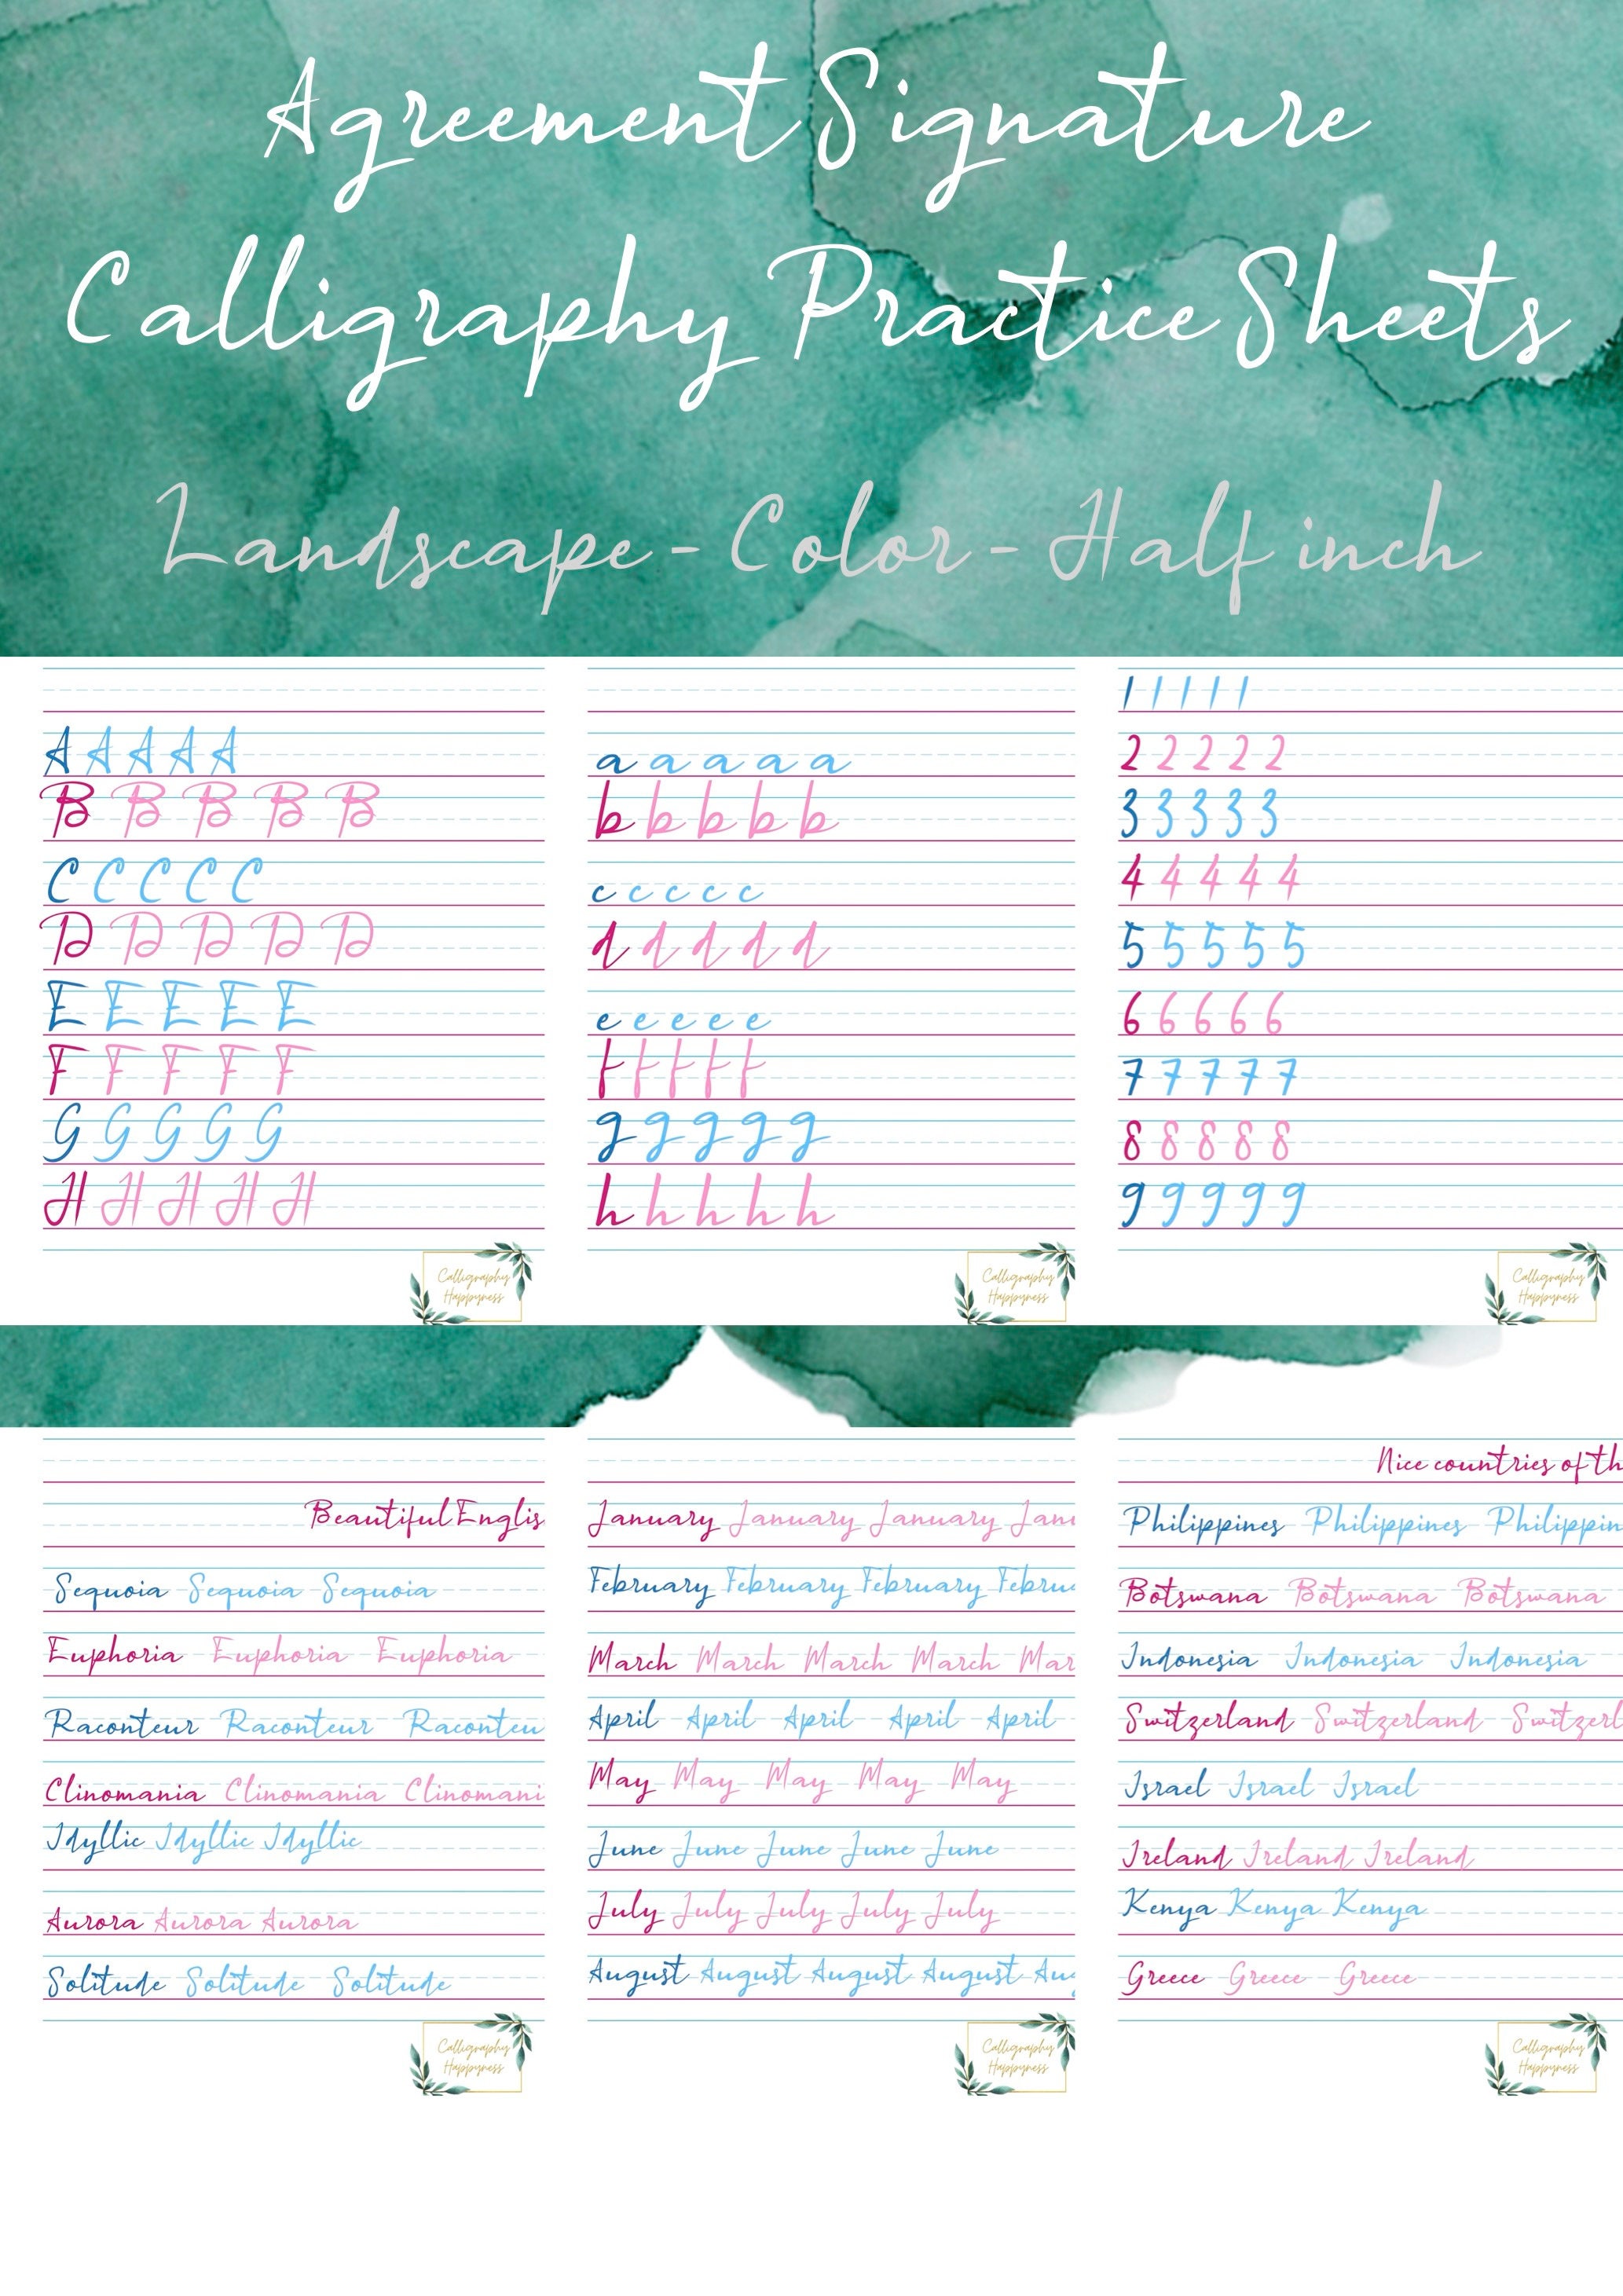 Agreement Signature
Calligraphy Practice Sheets
Landscape - Color - Half inch
A A A A A
B B B B B
C C C C C
D D D D D
E E E E E
F F F F F
G G G G G
H H H H H
Calligraphy
Happyness
a a a a a
b b b b b
c c c c c
d d d d d
e e e e e
f f f f f
g g g g g
h h h h h
Calligraphy
Happyness
1 1 1 1 1
2 2 2 2 2
3 3 3 3 3
4 4 4 4 4
5 5 5 5 5
6 6 6 6 6
7 7 7 7 7
8 8 8 8 8
9 9 9 9 9
Calligraphy
Happyness
Beautiful Englis
Sequoia Sequoia Sequoia
Euphoria Euphoria Euphoria
Raconteur Raconteur Raconteu
Clinomania Clinomania Clinomani
Idyllic Idyllic Idyllic
Aurora Aurora Aurora
Solitude Solitude Solitude
Calligraphy
Happyness
January January January Janu
February February February Febru
March March March March Mar
April April April April April
May May May May May
June June June June June
July July July July July
August August August August Aug
Calligraphy
Happyness
Nice countries of th
Philippines Philippines Philippin
Botswana Botswana Botswana
Indonesia Indonesia Indonesia
Switzerland Switzerland Switzerl
Israel Israel Israel
Ireland Ireland Ireland
Kenya Kenya Kenya
Greece Greece Greece
Calligraphy
Happyness